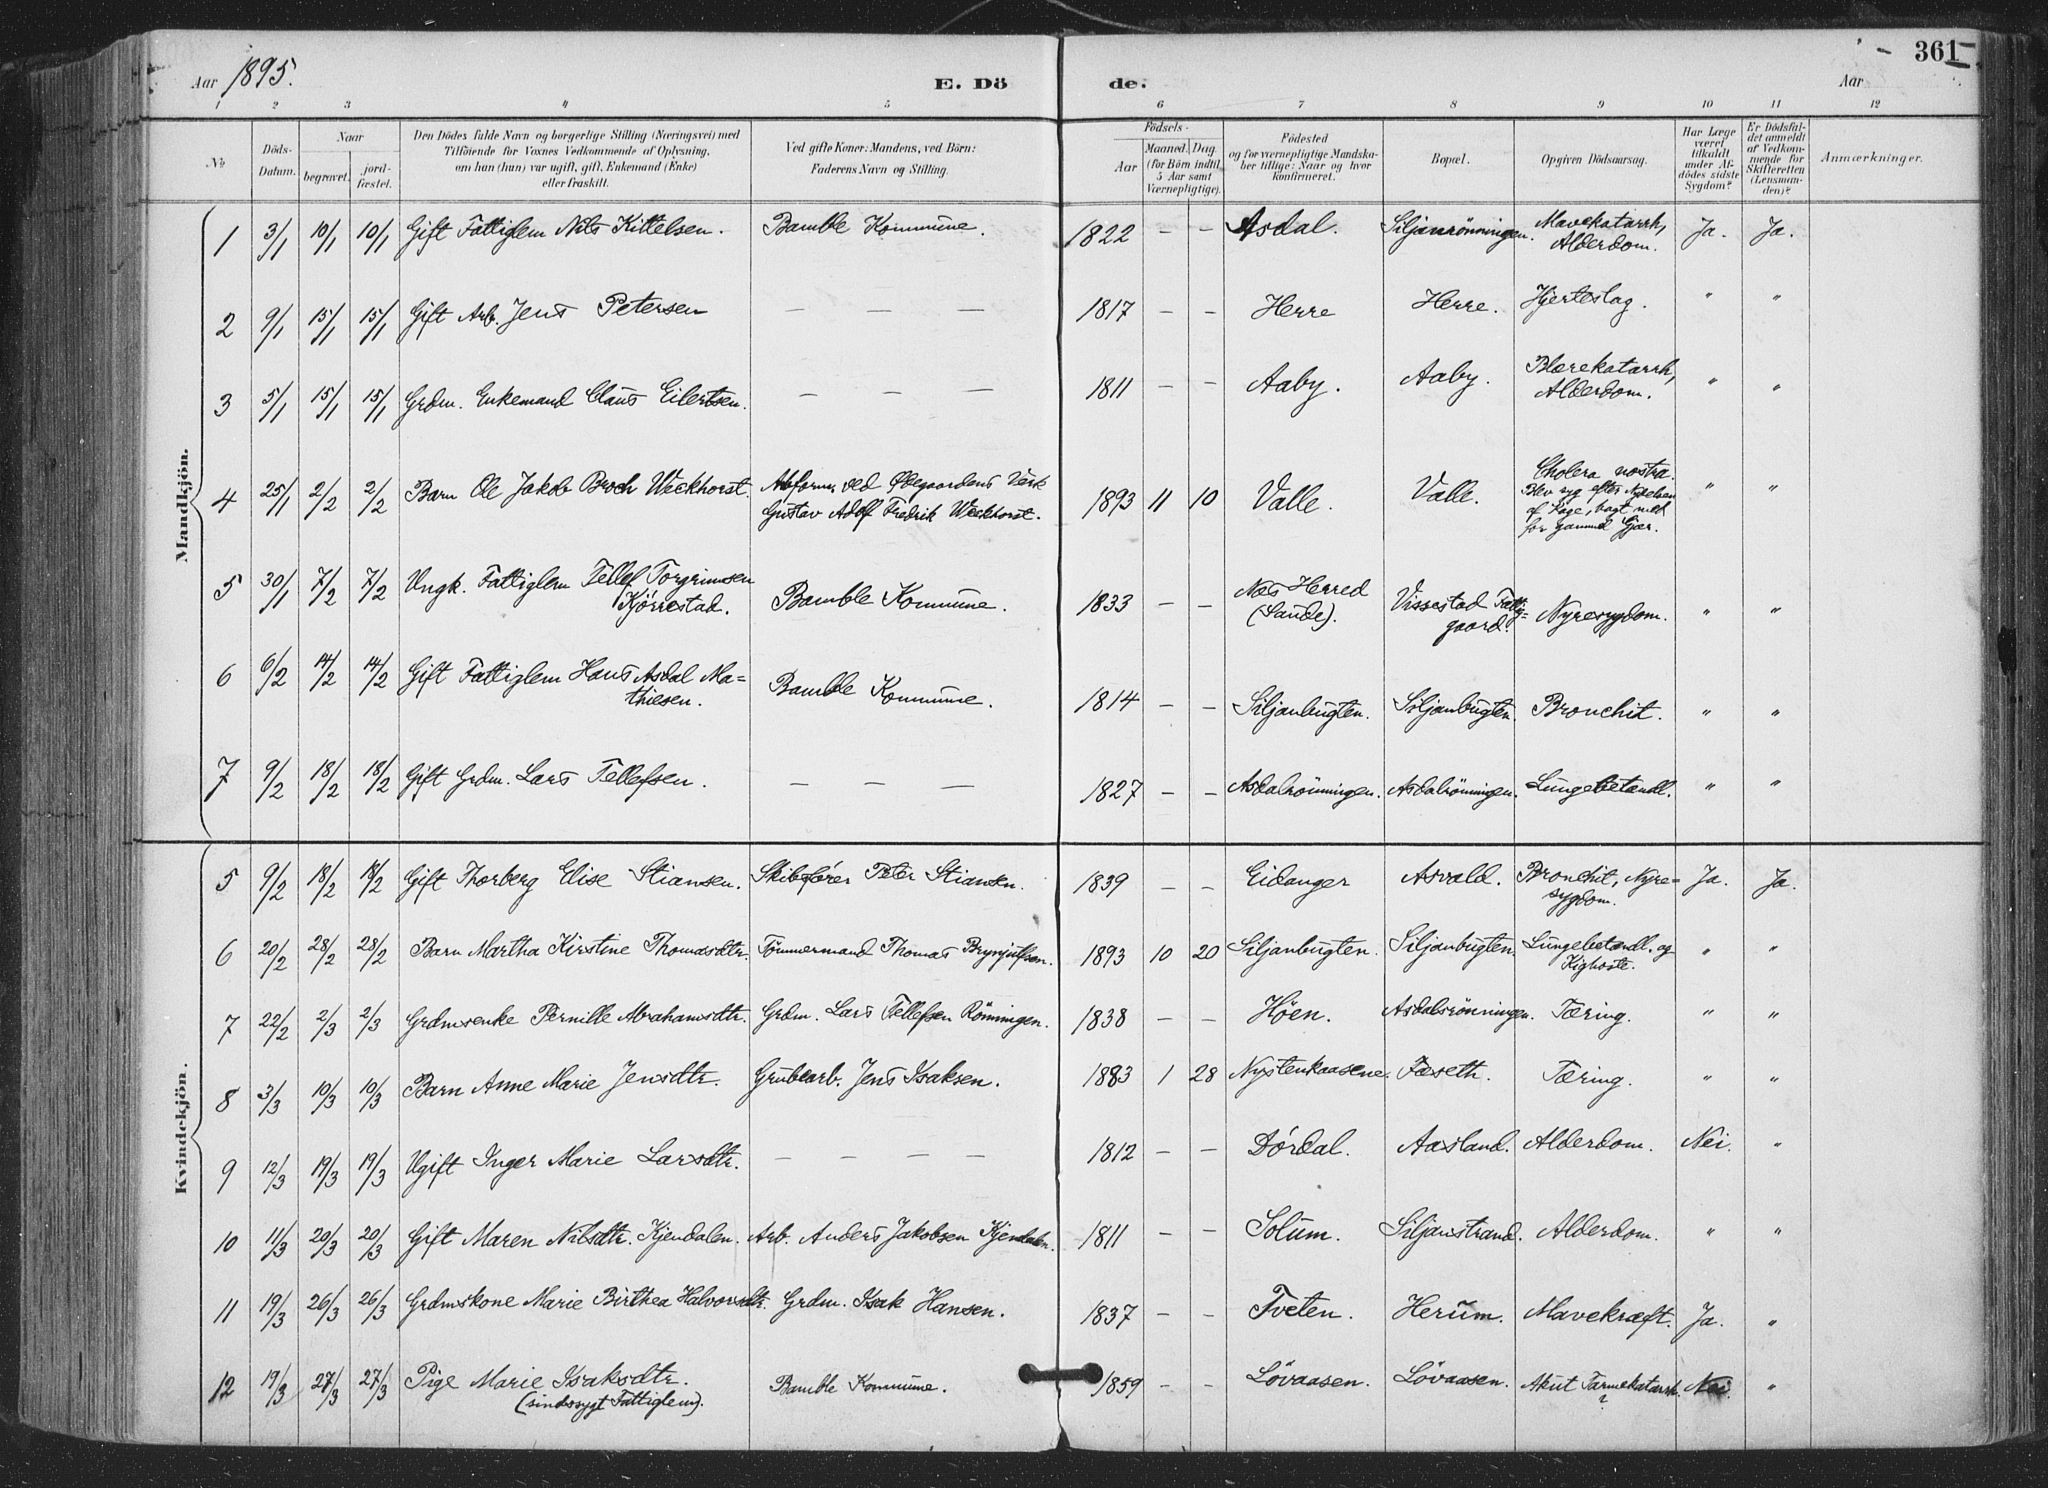 361
Aar 1895. E. Dö de. Aar
1 2 3 4 5 6 7 8 9 10 11 12
No
Döds-Datum.
Naar
begravet. jord-fæstet.
Den Dödes fulde Navn og borgerlige Stilling (Næringsvei) med
Tilföiende for Voxnes Vedkommende af Oplysning,
om han (hun) var ugift, gift, Enkemand (Enke)
eller fraskilt.
Ved gifte Koner: Mandens, ved Börn:
Faderens Navn og Stilling.
Födsels-
Aar
Maaned. Dag
(for Börn indtil
5 Aar samt
Værnepligtige).
Födested
og for værnepligtige Mandska-
ber tillige: Naar og hvor
konfirmeret.
Bopæl.
Opgiven Dödsaarsag.
Har Læge
været
tilkaldt
under Af-
dödes sidste
Sygdom?
Er Dödsfal-
det anmeldt
af Vedkom-
mende for
Skifteretten
(Lensman-
den)?
Anmærkninger.
Mandkjön.
1 3/1 10/1 10/1 Gift Fattiglem Nils Kittelsen. Bamble Kommune. 1822 – – Asdal. Siljanrönningen. Mavekatarrh, Alderdom. Ja. Ja.
2 9/1 15/1 15/1 Gift Arb. Jens Petersen — — — 1817 – – Herre Herre. Hjerteslag. " "
3 5/1 15/1 15/1 Grdm. Enkemand Claus Eilertsen. — — — 1811 – – Aaby. Aaby. Blærekatarrh, Alderdom. " "
4 25/1 2/2 2/2 Barn Ole Jakob Broch Weckhorst. ved Ødegaardens Verk Gustav Adolf Fredrik Weckhorst. 1893 11 10 Valle. Valle. Cholera nostra. Blev syg efter Nydelsen af Kage, bagt med for gammel Gjær. " "
5 30/1 7/2 7/2 Ungk. Fattiglem Tellef Torgrimsen Kjörrestad. Bamble Kommune. 1833 – – Næs Herred (Saude). Vissestad Fattig-gaard. Nyresygdom. " "
6 6/2 14/2 14/2 Gift Fattiglem Hans Asdal Ma=thiesen. Bamble Kommune. 1814 – – Siljanbugten. Siljanbugten. Bronchit. " "
7 9/2 18/2 18/2 Gift Grdm. Lars Tellefsen. — — — 1827 – – Asdalrönningen. Asdalrönningen. Lungebetændl. " "
Kvindekjön.
5 9/2 18/2 18/2 Gift Thorberg Elise Stiansen. Skibsförer Peter Stiansen. 1839 – – Eidanger Asvald. Bronchit, Nyre=sygdom. Ja. Ja.
6 20/2 28/2 28/2 Barn Martha Kirstine Thomasdtr. Tömmermand Thomas Brynjulfsen. 1893 10 20 Siljanbugten. Siljanbugten. Lungebetændl. og Kighoste. " "
7 22/2 2/3 2/3 Grdmsenke Pernille Abrahamsdtr. Grdm. Lars Tellefsen Rönningen. 1838 – – Höen. Asdalsrönningen. Tæring. " "
8 3/3 10/3 10/3 Barn Anne Marie Jensdtr. Grubearb. Jens Isaksen. 1883 1 28 Nystenkaasene. Fæseth. Tæring. " "
9 12/3 19/3 19/3 Ugift Inger Marie Larsdtr. — — — — 1812 – – Dördal. Aasland. Alderdom. Nei. "
10 11/3 20/3 20/3 Gift Maren Nilsdtr. Kjendalen. Arb. Anders Jakobsen Kjendalen. 1811 – – Solum. Siljanstrand. Alderdom. " "
11 19/3 26/3 26/3 Grdmskone Marie Birthea Halvorsdtr. Grdm. Isak Hansen. 1837 – – Tveten. Herum. Mavekræft. Ja. "
12 19/3 27/3 27/3 Pige Marie Isaksdtr. (sindssygt Fattiglem). Bamble Kommune. 1859 – – Lövaasen. Lövaasen. Akut Tarmekatarrh. ? Nei. "